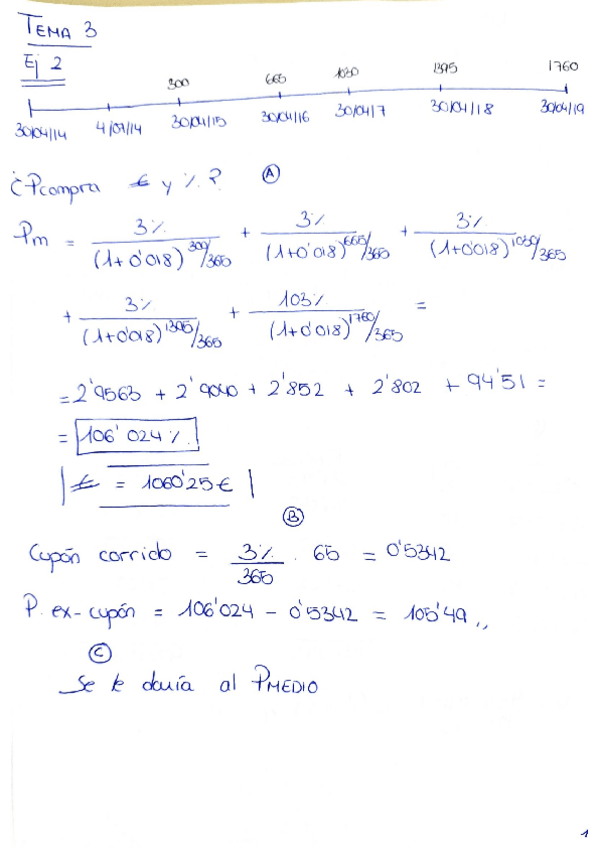 TEMA 3
Ej 2
300 665 1030 1395 1760
30/04/14 4/07/14 30/04/15 30/04/16 30/04/17 30/04/18 30/04/19
¿Pcompra € y %? Ⓐ
Pm = 3% / (1+0'018)^300/365 + 3% / (1+0'018)^665/365 + 3% / (1+0'018)^1030/365
+ 3% / (1+0'018)^1395/365 + 103% / (1+0'018)^1760/365 =
= 2'9563 + 2'9040 + 2'852 + 2'802 + 94'51 =
= 106'024%
€ = 1060'25€
Ⓑ
Cupón corrido = 3% / 365 · 65 = 0'5342
P. ex-cupón = 106'024 - 0'5342 = 105'49,,
Ⓒ
Se le daría al PMEDIO
1